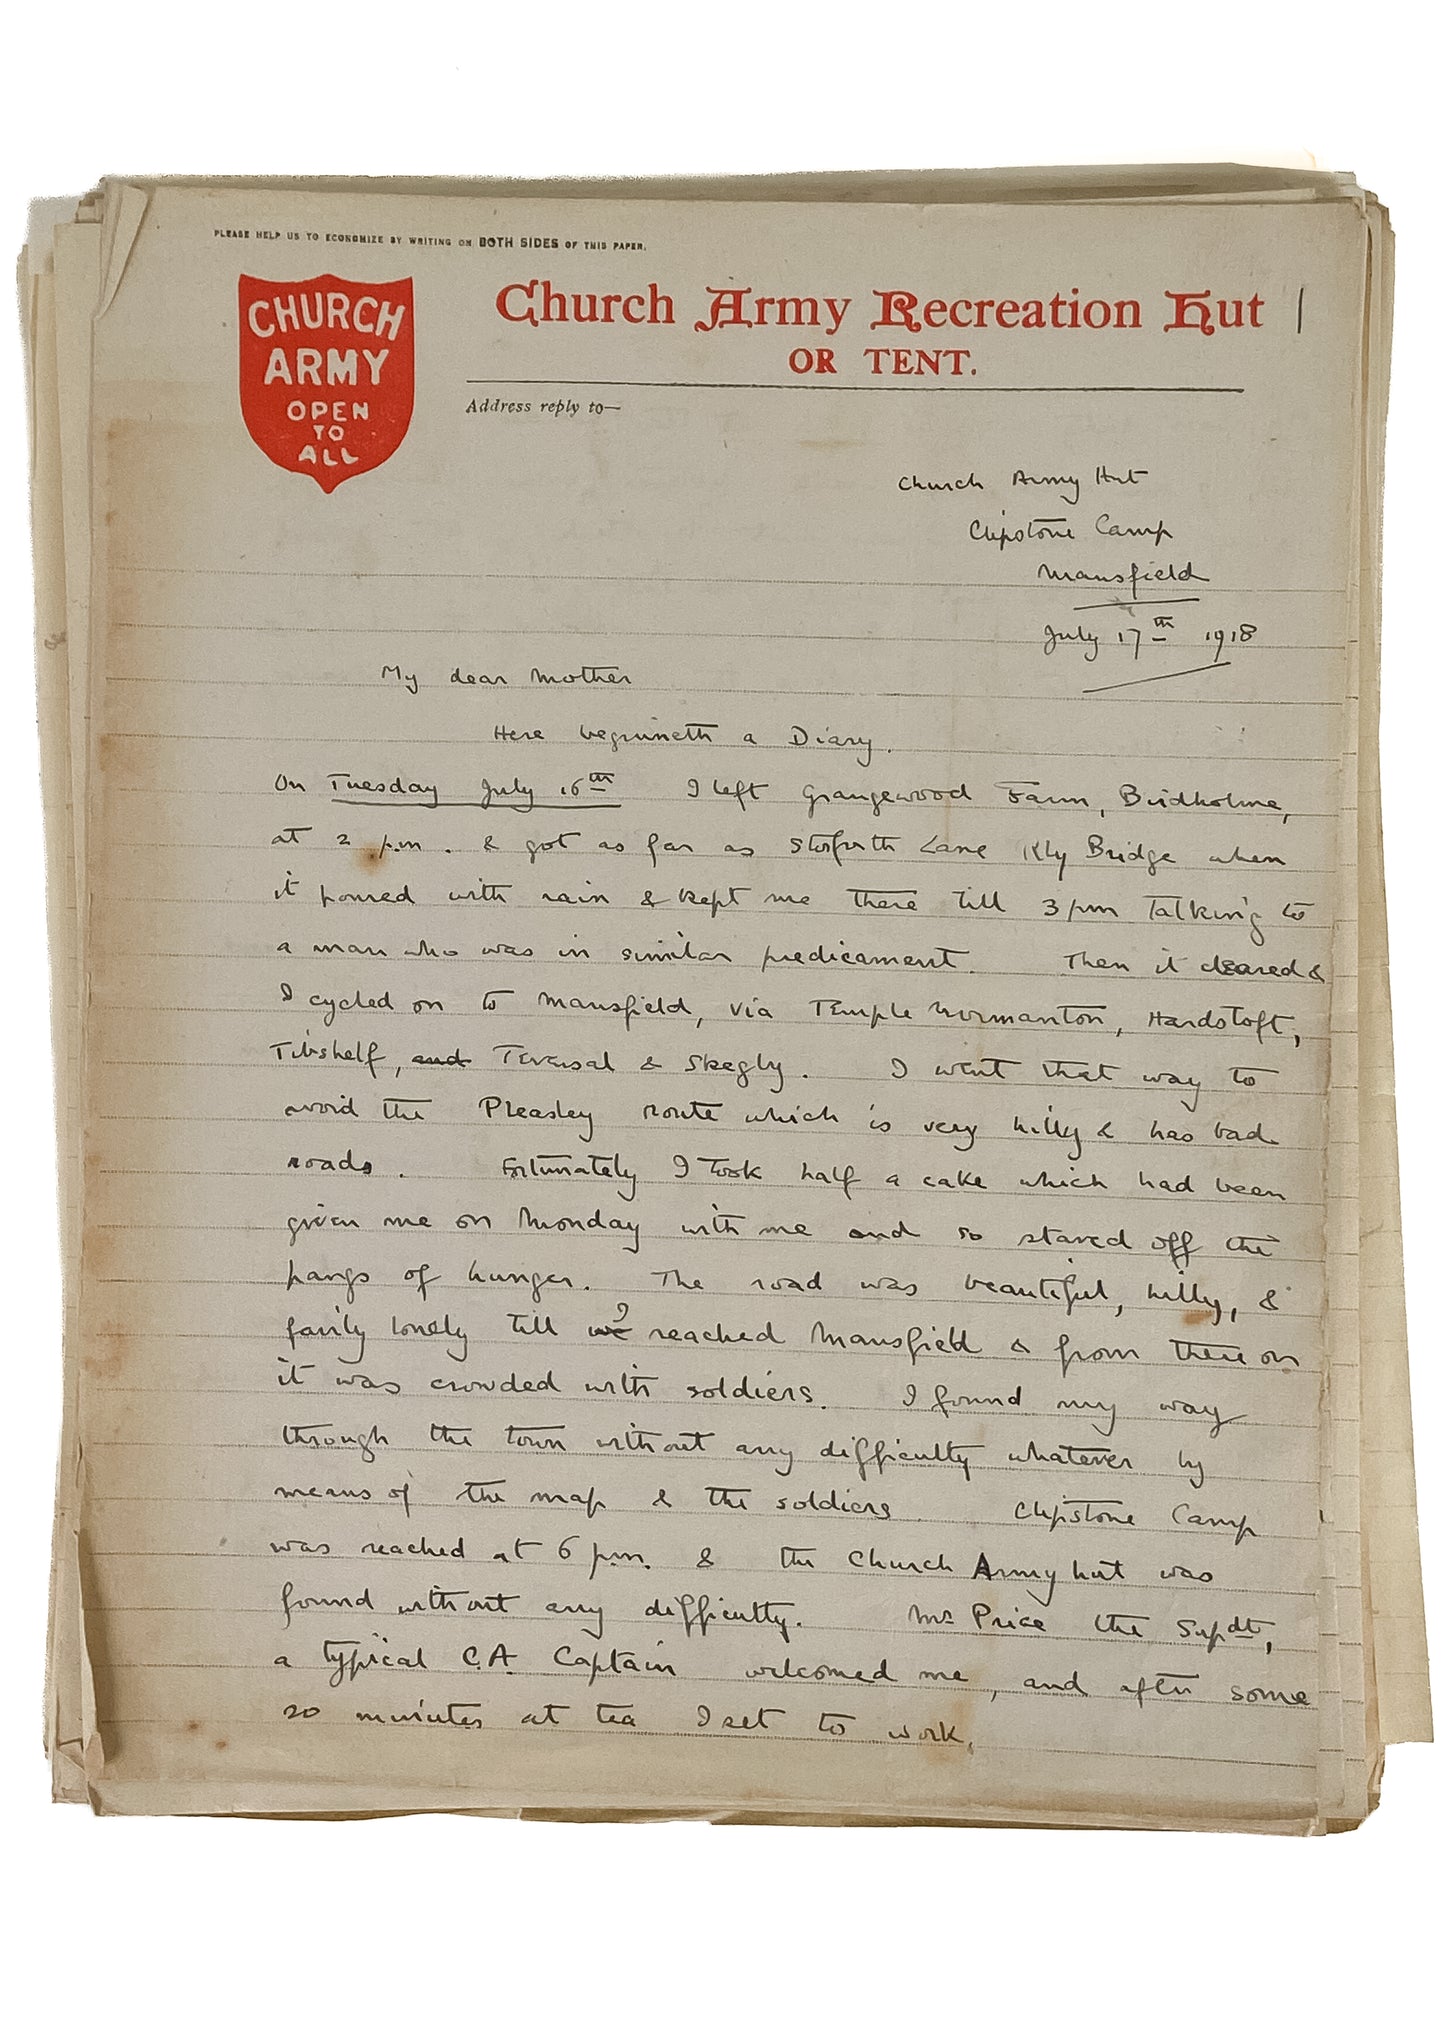 PLEASE HELP US TO ECONOMIZE BY WRITING ON BOTH SIDES OF THIS PAPER.
CHURCH
ARMY
OPEN
TO
ALL
Church Army Recreation Hut 1
OR TENT.
Address reply to—
Church Army Hut
Clipstone Camp
Mansfield
July 17th 1918
My dear Mother
Here beginneth a Diary.
On Tuesday July 16th I left Grangewood Farm, Birdholme,
at 2 p.m. & got as far as Storforth Lane Rly Bridge when
it poured with rain & kept me there till 3 pm talking to
a man who was in similar predicament. Then it cleared &
I cycled on to Mansfield, via Temple Normanton, Hardstoft,
Tibshelf, and Teversal & Skegby. I went that way to
avoid the Pleasley route which is very hilly & has bad
roads. Fortunately I took half a cake which had been
given me on Monday with me and so staved off the
pangs of hunger. The road was beautiful, hilly, &
fairly lonely till we I reached Mansfield & from there on
it was crowded with soldiers. I found my way
through the town without any difficulty whatever by
means of the map & the soldiers. Clipstone Camp
was reached at 6 p.m. & the Church Army hut was
found without any difficulty. Mr Price the Supdt,
a typical C.A. Captain welcomed me, and after some
20 minutes at tea I set to work.